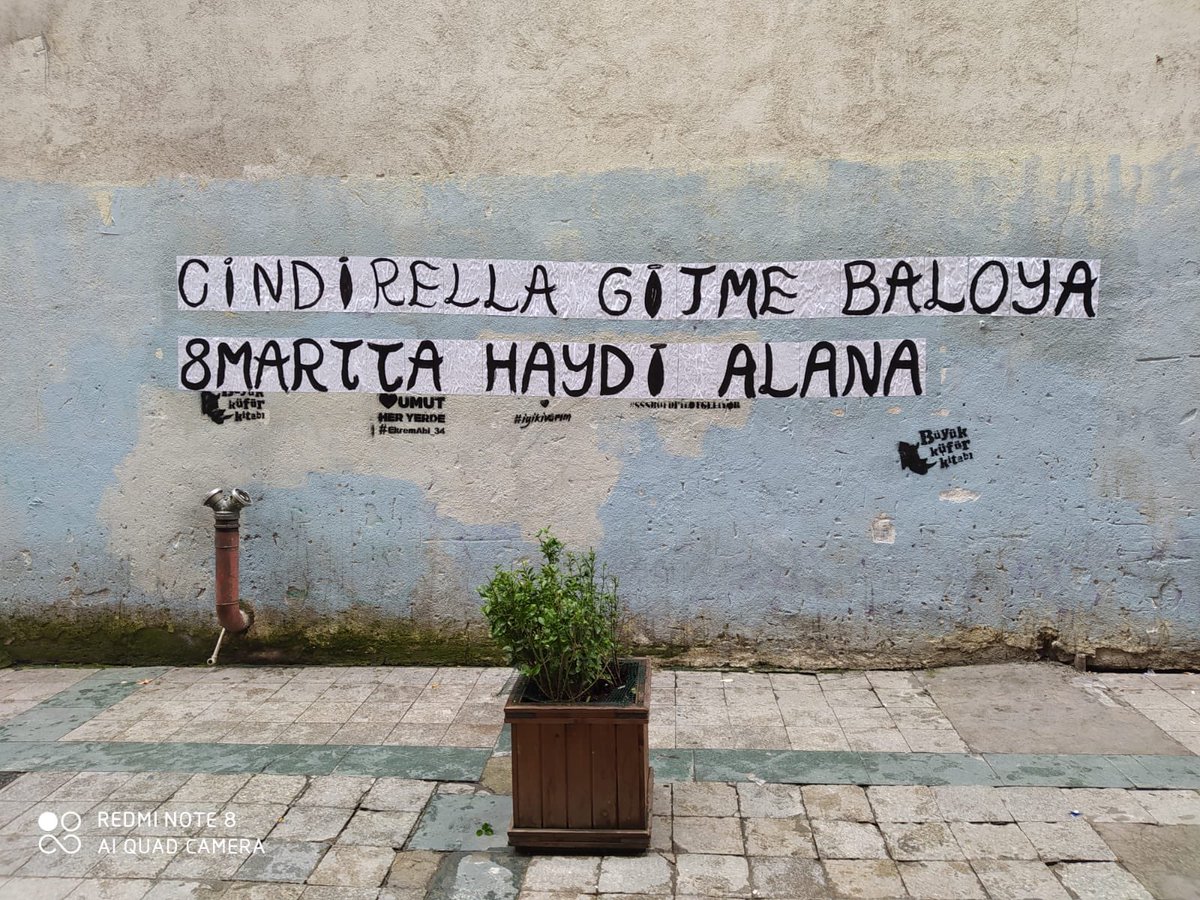 CİNDİRELLA GİTME BALOYA
8MARTTA HAYDİ ALANA
Büyük
küfür
kitabı
UMUT
HER YERDE
#EkremAbi_34
#iyikivarım
Büyük
küfür
kitabı
REDMI NOTE 8
AI QUAD CAMERA